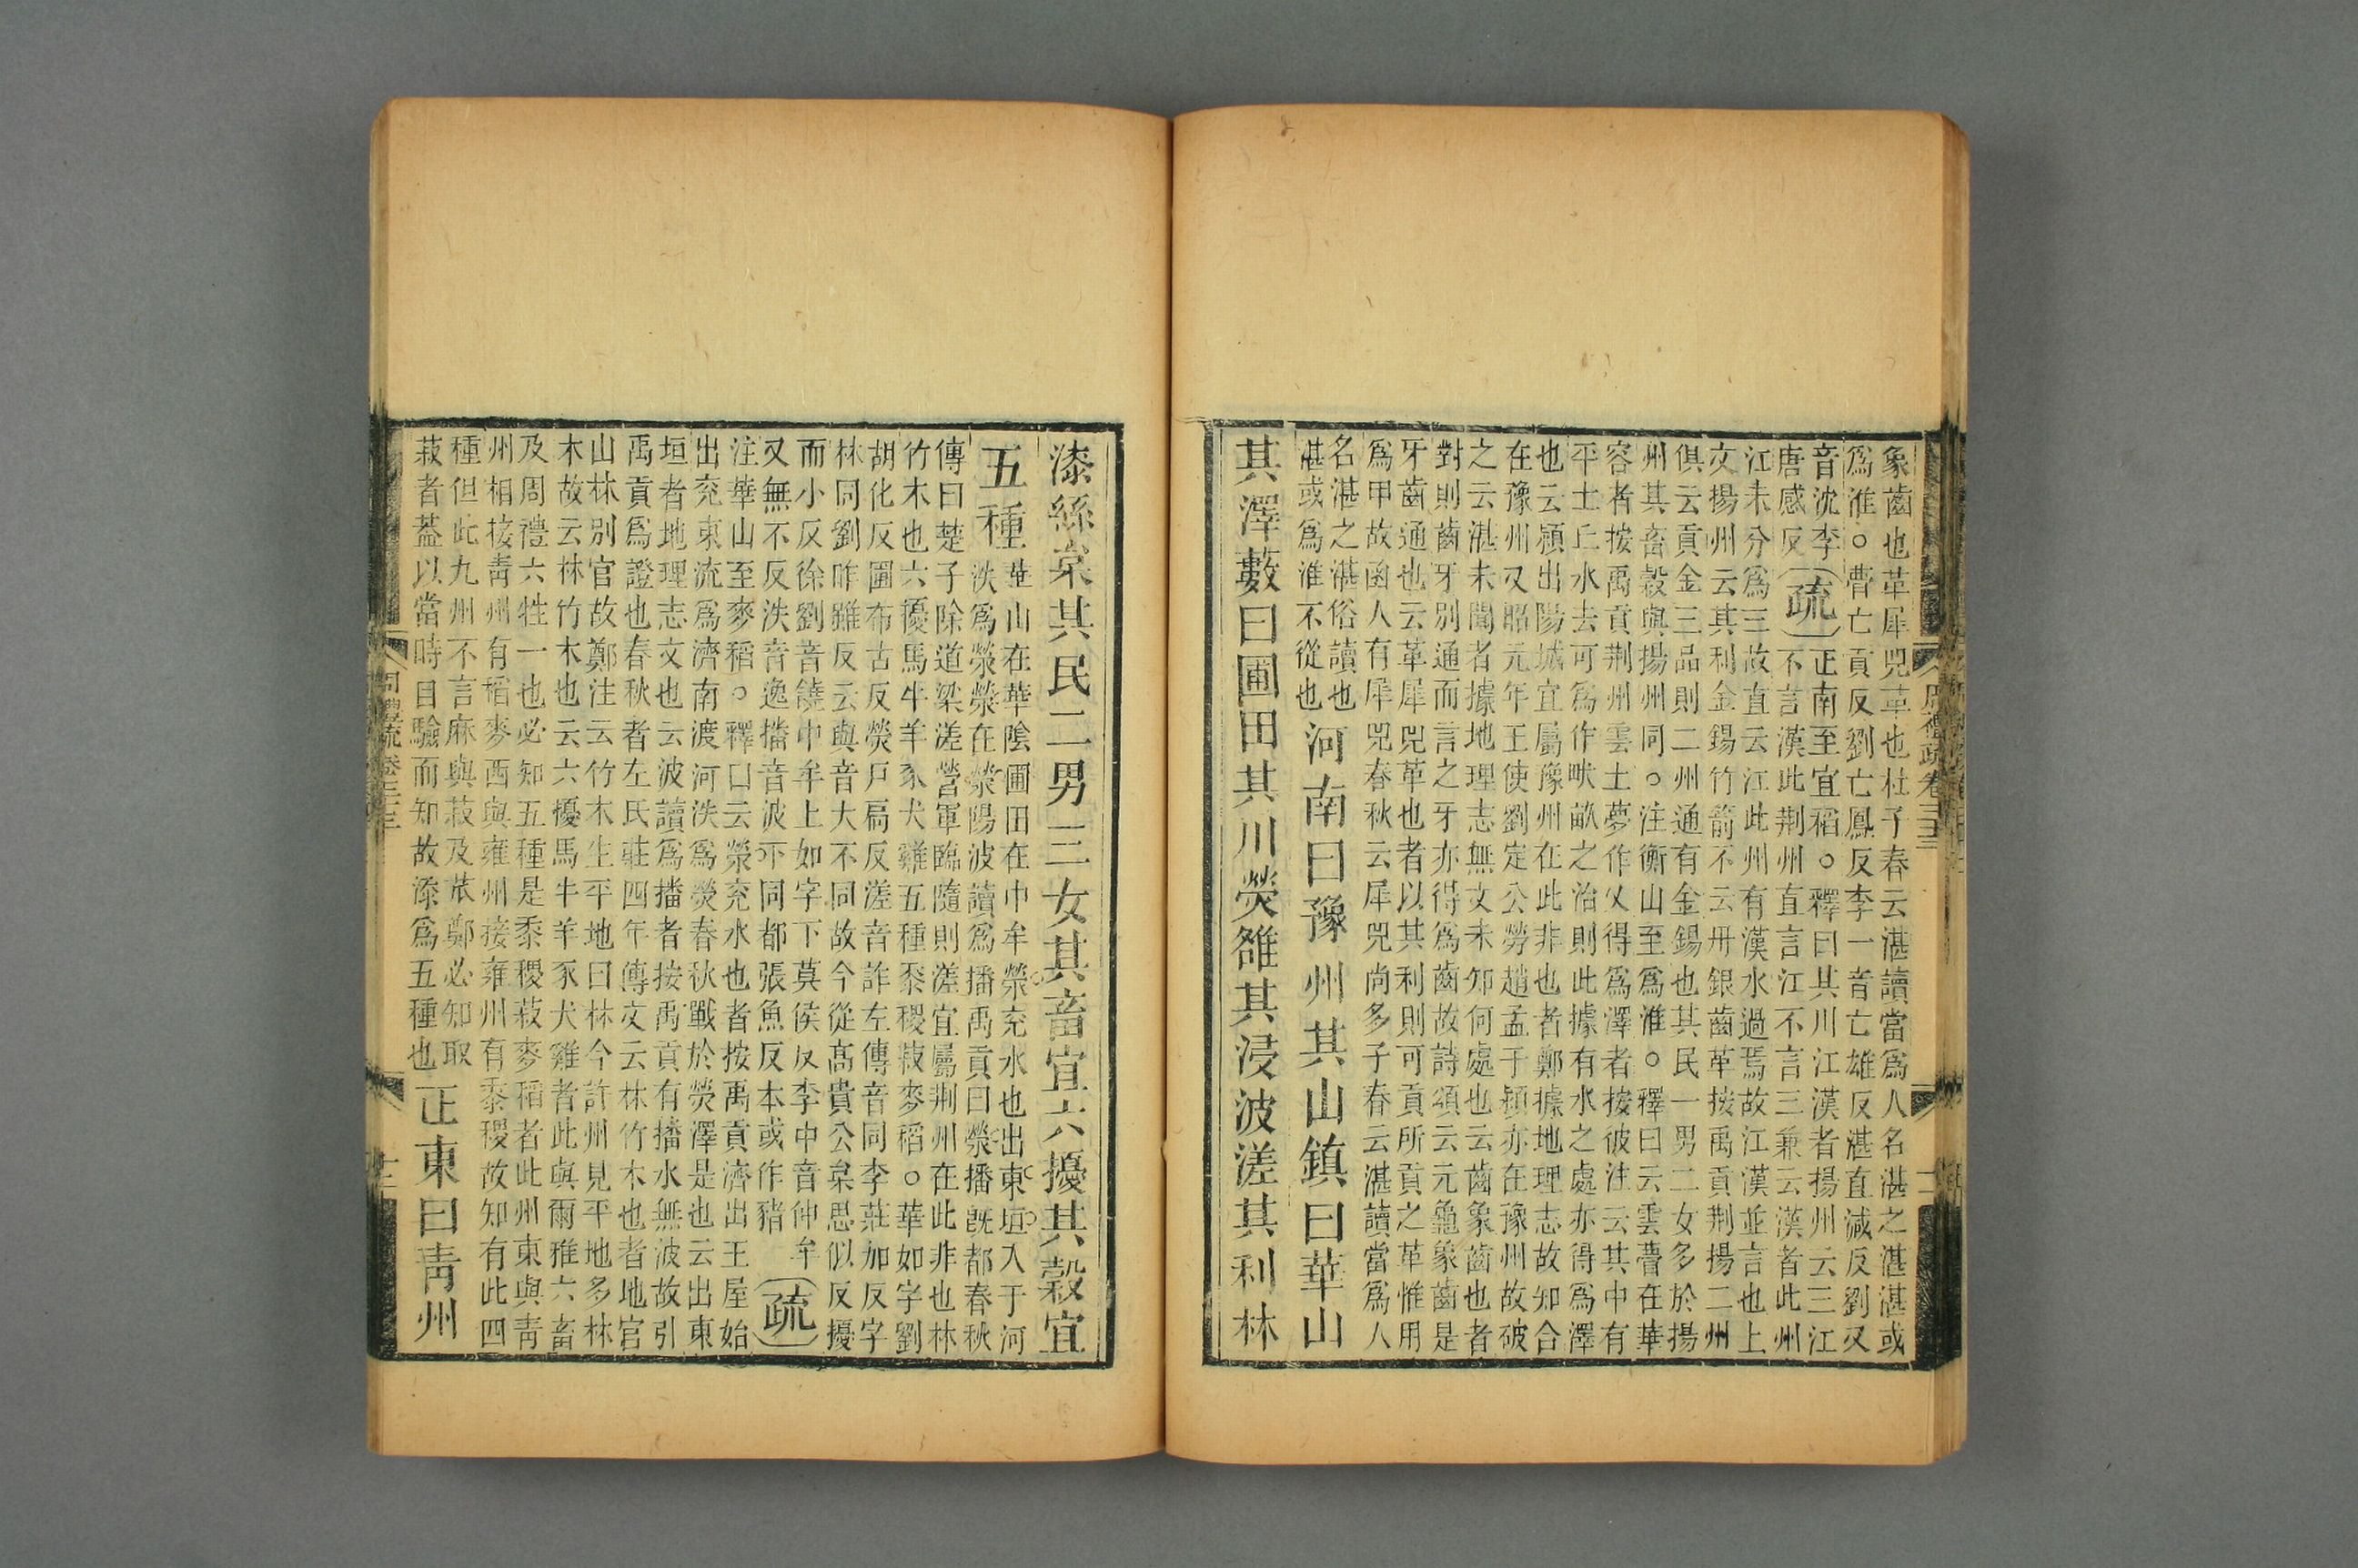 象齒也革犀兕革也杜子春云湛讀當爲人名湛之湛湛或
爲淮。瞢亡貢反劉亡鳳反李一音亡雄反湛直減反劉又
音沈李
唐感反
疏
正南至宜稻。釋曰其川江漢者揚州云三江
不言漢此荆州直言江不言三兼云漢者此州
江未分爲三故直云江此州有漢水過焉故江漢並言也上
文揚州云其利金錫竹箭不云丹銀齒革按禹貢荆揚二州
俱云貢金三品則二州通有金錫也其民一男二女多於揚
州其畜穀與揚州同。注衡山至爲淮。釋曰云雲瞢在華
容者按禹貢荆州雲土夢作乂得爲澤者按彼注云其中有
平土丘水去可爲作畎畝之治則此據有水之處亦得爲澤
也云潁出陽城宜屬豫州在此非也者鄭據地理志故知合
在豫州又昭元年王使劉定公勞趙孟于潁亦在豫州故破
之云湛未聞者據地理志無文未知何處也云齒象齒也者
對則齒牙別通而言之牙亦得爲齒故詩頌云元龜象齒是
牙齒通也云革犀兕革也者以其利則可貢所貢之革惟用
爲甲故函人有犀兕春秋云犀兕尚多子春云湛讀當爲人
名湛之湛俗讀也
湛或爲淮不從也
河南曰豫州其山鎮曰華山
其澤藪曰圃田其川熒雒其浸波溠其利林
周禮疏卷三十三
漆絲枲其民二男三女其畜宜六擾其穀宜
五種
華山在華陰圃田在中牟滎兗水也出東垣入于河
泆爲滎滎在滎陽波讀爲播禹貢曰滎播既都春秋
傳曰楚子除道梁溠營軍臨隨則溠宜屬荆州在此非也林
竹木也六擾馬牛羊豕犬雞五種黍稷菽麥稻。華如字劉
胡化反圃布古反熒戸扃反溠音詐左傳音同李莊加反字
林同劉昨雖反云與音大不同故今從髙貴公枲思似反擾
而小反徐劉音饒中牟上如字下莫侯反李中音仲牟
又無不反泆音逸播音波下同都張魚反本或作豬
疏
注華山至麥稻。釋曰云滎兗水也者按禹貢濟出王屋始
出兗東流爲濟南渡河泆爲熒春秋戰於熒澤是也云出東
垣者地理志文也云波讀爲播者按禹貢有播水無波故引
禹貢爲證也春秋者左氏莊四年傳文云林竹木也者地官
山林別官故鄭注云竹木生平地曰林今許州見平地多林
木故云林竹木也云六擾馬牛羊豕犬雞者此與爾雅六畜
及周禮六牲一也必知五種是黍稷菽麥稻者此州東與靑
州相接靑州有稻麥西與雍州接雍州有黍稷故知有此四
種但此九州不言麻與菽及苽鄭必知取
菽者葢以當時目驗而知故添爲五種也
正東曰靑州